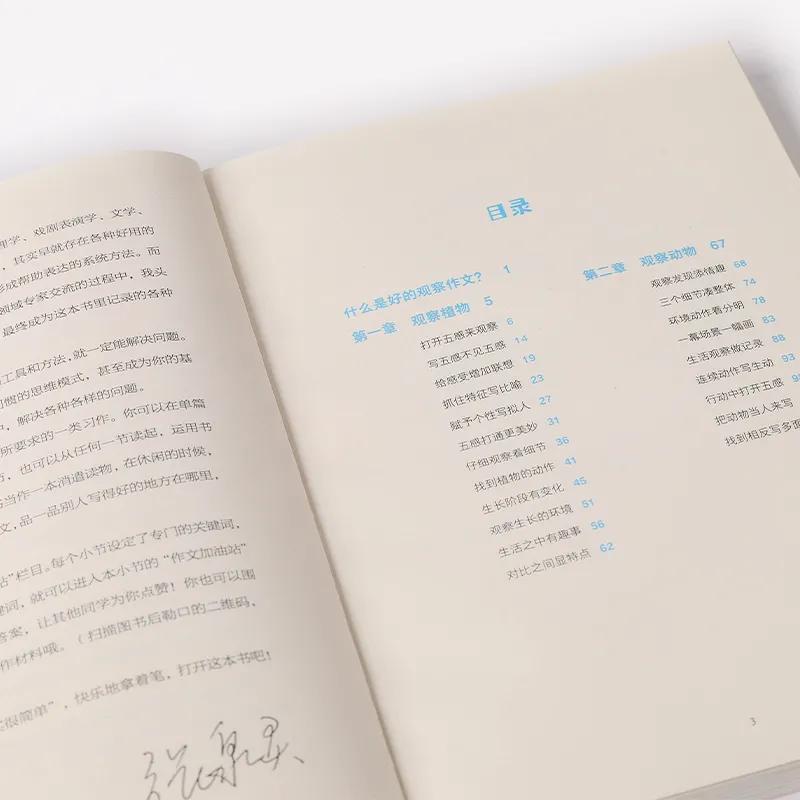 理学、戏剧表演学、文学、
，其实早就存在各种好用的
形成帮助表达的系统方法。而
领域专家交流的过程中，我头
最终成为这本书里记录的各种
工具和方法，就一定能解决问题。
惯的思维模式，甚至成为你的基
，解决各种各样的问题。
所要求的一类习作。你可以在单篇
，也可以从任何一节读起，运用书
当作一本消遣读物，在休闲的时候，
文，品一品别人写得好的地方在哪里，
站”栏目。每个小节设定了专门的关键词，
键词，就可以进入本小节的“作文加油站”
答案，让其他同学为你点赞！你也可以围
作材料哦。（扫描图书后勒口的二维码，
很简单”，快乐地拿着笔，打开这本书吧！
张泉灵
目录
什么是好的观察作文？ 1
第一章 观察植物 5
打开五感来观察 6
写五感不见五感 14
给感受增加联想 19
抓住特征写比喻 23
赋予个性写拟人 27
五感打通更美妙 31
仔细观察看细节 36
找到植物的动作 41
生长阶段有变化 45
观察生长的环境 51
生活之中有趣事 56
对比之间显特点 62
第二章 观察动物 67
观察发现添情趣 68
三个细节凑整体 74
环境动作看分明 78
一幕场景一幅画 83
生活观察做记录 88
连续动作写生动 93
行动中打开五感
把动物当人来写
找到相反写多面
3